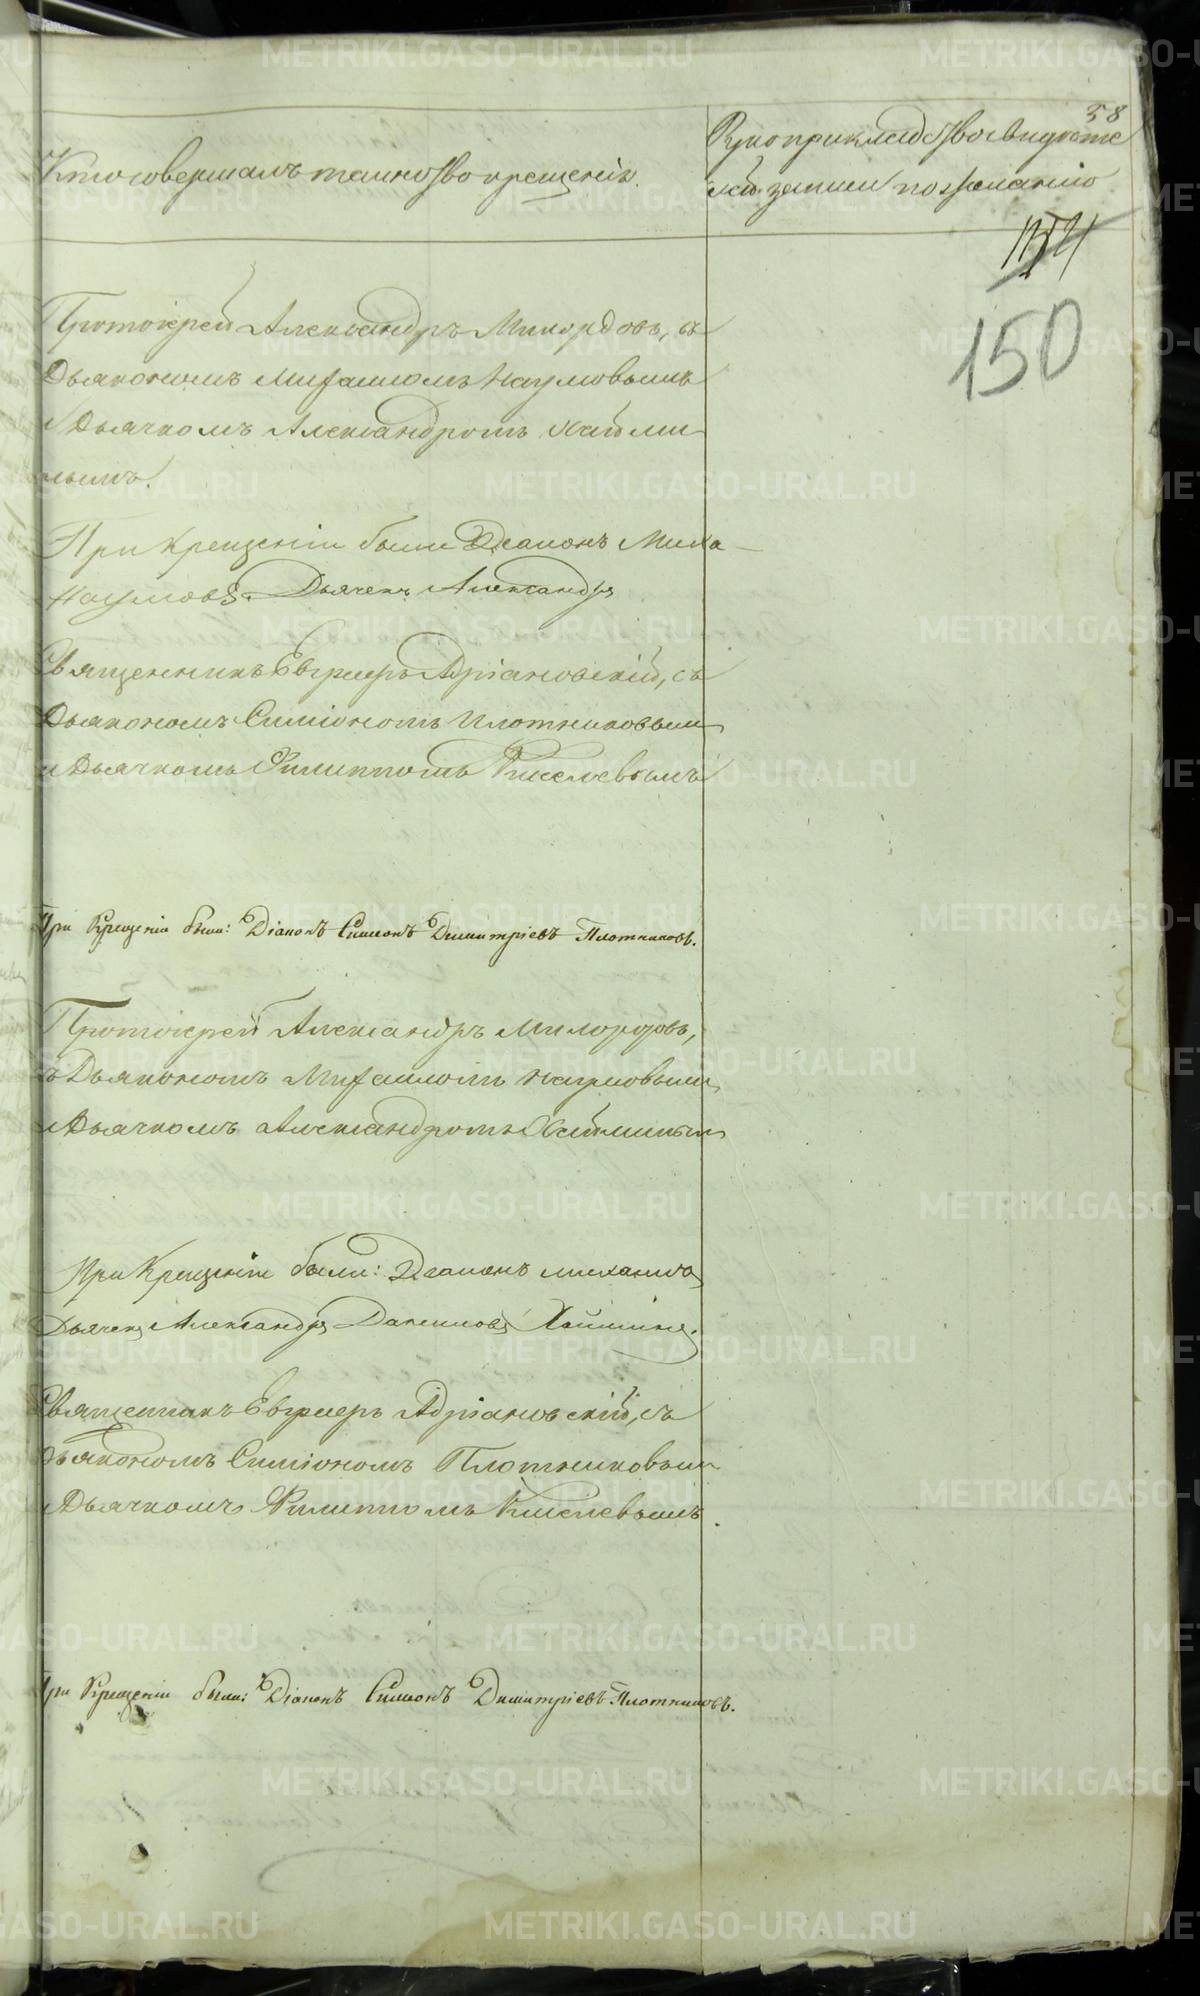 58
Кто совершалъ таинство крещенія.
Рукоприкладство свидѣте
лей записи по желанію
150
Протоіерей Александръ Милордовъ, съ
Дьякономъ Михаиломъ Наумовымъ
и Дьячкомъ Александромъ Хайми
нымъ.
При Крещеніи были Діаконъ Миха
Наумовъ. Дьячекъ Александръ
Священникъ Евгмеръ Адріановскій, съ
Дьякономъ Симіономъ Плотниковым
и Дьячкомъ Филиппомъ Киселевымъ
При Крещеніи были: Діаконъ Симеонъ Димитріевъ Плотниковъ.
Протоіерей Александръ Милордовъ,
съ Дьякономъ Михаиломъ Наумовымъ
и Дьячкомъ Александромъ Хайминым
При Крещеніи были: Діаконъ Михаилъ
Дьячекъ Александръ Даниловъ Хайминъ.
Священникъ Евгмеръ Адріановскій, съ
Дьякономъ Симіономъ Плотниковым
и Дьячкомъ Филиппомъ Киселевымъ.
При Крещеніи были: Діаконъ Симеонъ Димитріевъ Плотниковъ.
METRIKI.GASO-URAL.RU